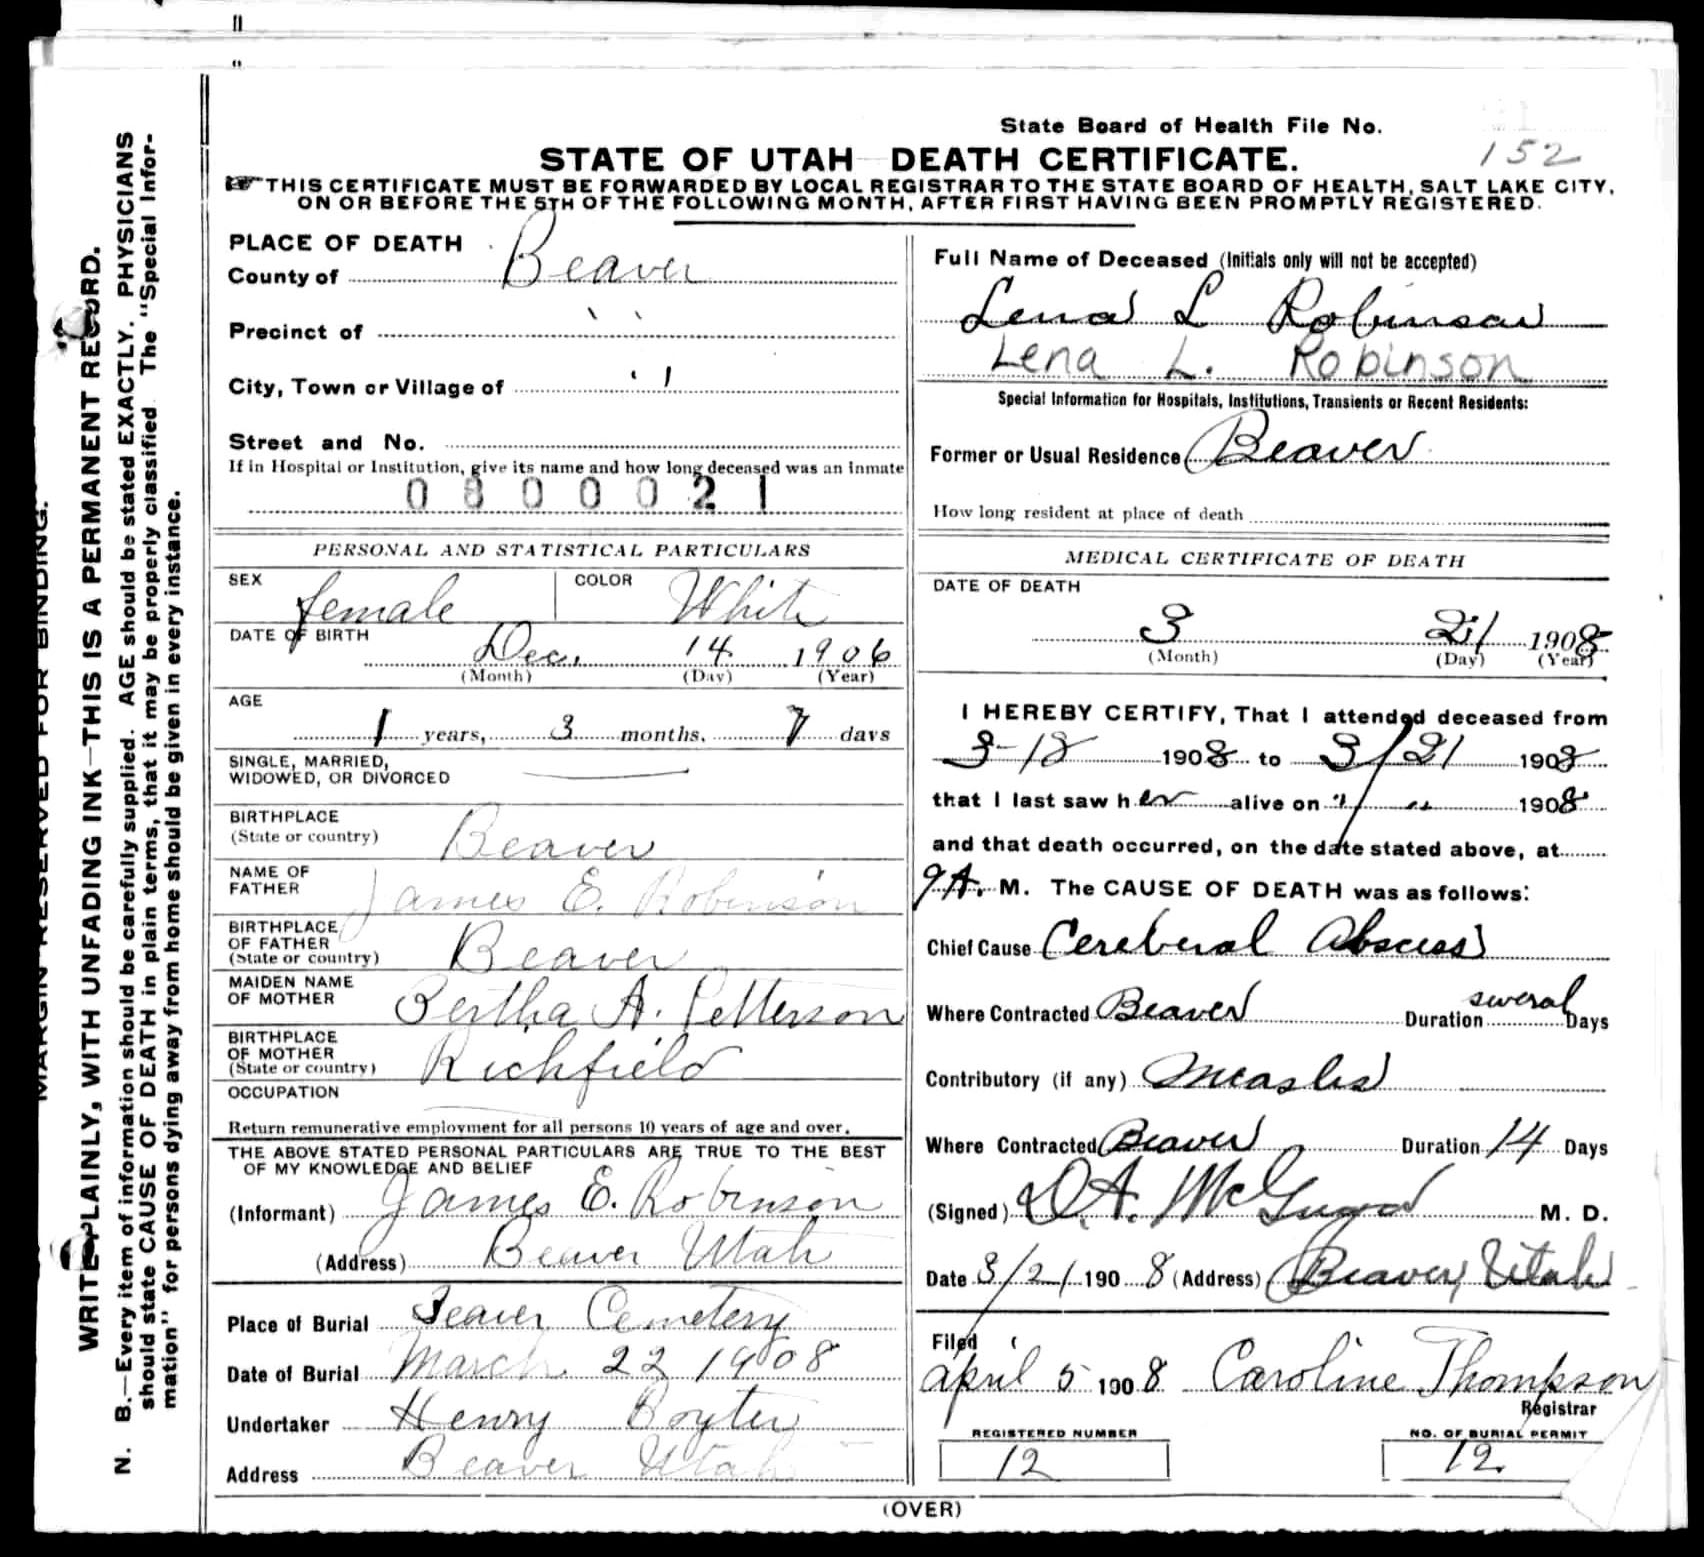 State Board of Health File No.
152
STATE OF UTAH—DEATH CERTIFICATE.
☞THIS CERTIFICATE MUST BE FORWARDED BY LOCAL REGISTRAR TO THE STATE BOARD OF HEALTH, SALT LAKE CITY,
ON OR BEFORE THE 5TH OF THE FOLLOWING MONTH, AFTER FIRST HAVING BEEN PROMPTLY REGISTERED.
MARGIN RESERVED FOR BINDING.
WRITE PLAINLY, WITH UNFADING INK—THIS IS A PERMANENT RECORD.
N. B.—Every item of information should be carefully supplied. AGE should be stated EXACTLY. PHYSICIANS
should state CAUSE OF DEATH in plain terms, that it may be properly classified. The "Special Infor-
mation" for persons dying away from home should be given in every instance.
PLACE OF DEATH
County of Beaver
Precinct of " 
City, Town or Village of "
Street and No.
If in Hospital or Institution, give its name and how long deceased was an inmate
0 0 0 0 0 2 1
PERSONAL AND STATISTICAL PARTICULARS
SEX female COLOR White
DATE OF BIRTH
Dec. 14 1906
(Month) (Day) (Year)
AGE
1 years, 3 months, 7 days
SINGLE, MARRIED,
WIDOWED, OR DIVORCED
BIRTHPLACE
(State or country) Beaver
NAME OF
FATHER James E. Robinson
BIRTHPLACE
OF FATHER
(State or country) Beaver
MAIDEN NAME
OF MOTHER Bertha A. Petterson
BIRTHPLACE
OF MOTHER
(State or country) Richfield
OCCUPATION
Return remunerative employment for all persons 10 years of age and over.
THE ABOVE STATED PERSONAL PARTICULARS ARE TRUE TO THE BEST
OF MY KNOWLEDGE AND BELIEF
(Informant) James E. Robinson
(Address) Beaver Utah
Place of Burial Beaver Cemetery
Date of Burial March 22 1908
Undertaker Henry Boyter
Address Beaver Utah
Full Name of Deceased (Initials only will not be accepted)
Lena L Robinson
Lena L. Robinson
Special Information for Hospitals, Institutions, Transients or Recent Residents:
Former or Usual Residence Beaver
How long resident at place of death
MEDICAL CERTIFICATE OF DEATH
DATE OF DEATH
3 21 1908
(Month) (Day) (Year)
I HEREBY CERTIFY, That I attended deceased from
3-18 1908 to 3/21 1908
that I last saw her alive on " " 1908
and that death occurred, on the date stated above, at
9 A. M. The CAUSE OF DEATH was as follows:
Chief Cause Cerebral Abscess
Where Contracted Beaver Duration several Days
Contributory (if any) Measles
Where Contracted Beaver Duration 14 Days
(Signed) D. A. McGregor M. D.
Date 3/21 1908 (Address) Beaver, Utah
Filed
April 5 1908 Caroline Thompson
Registrar
REGISTERED NUMBER
12
NO. OF BURIAL PERMIT
12
(OVER)